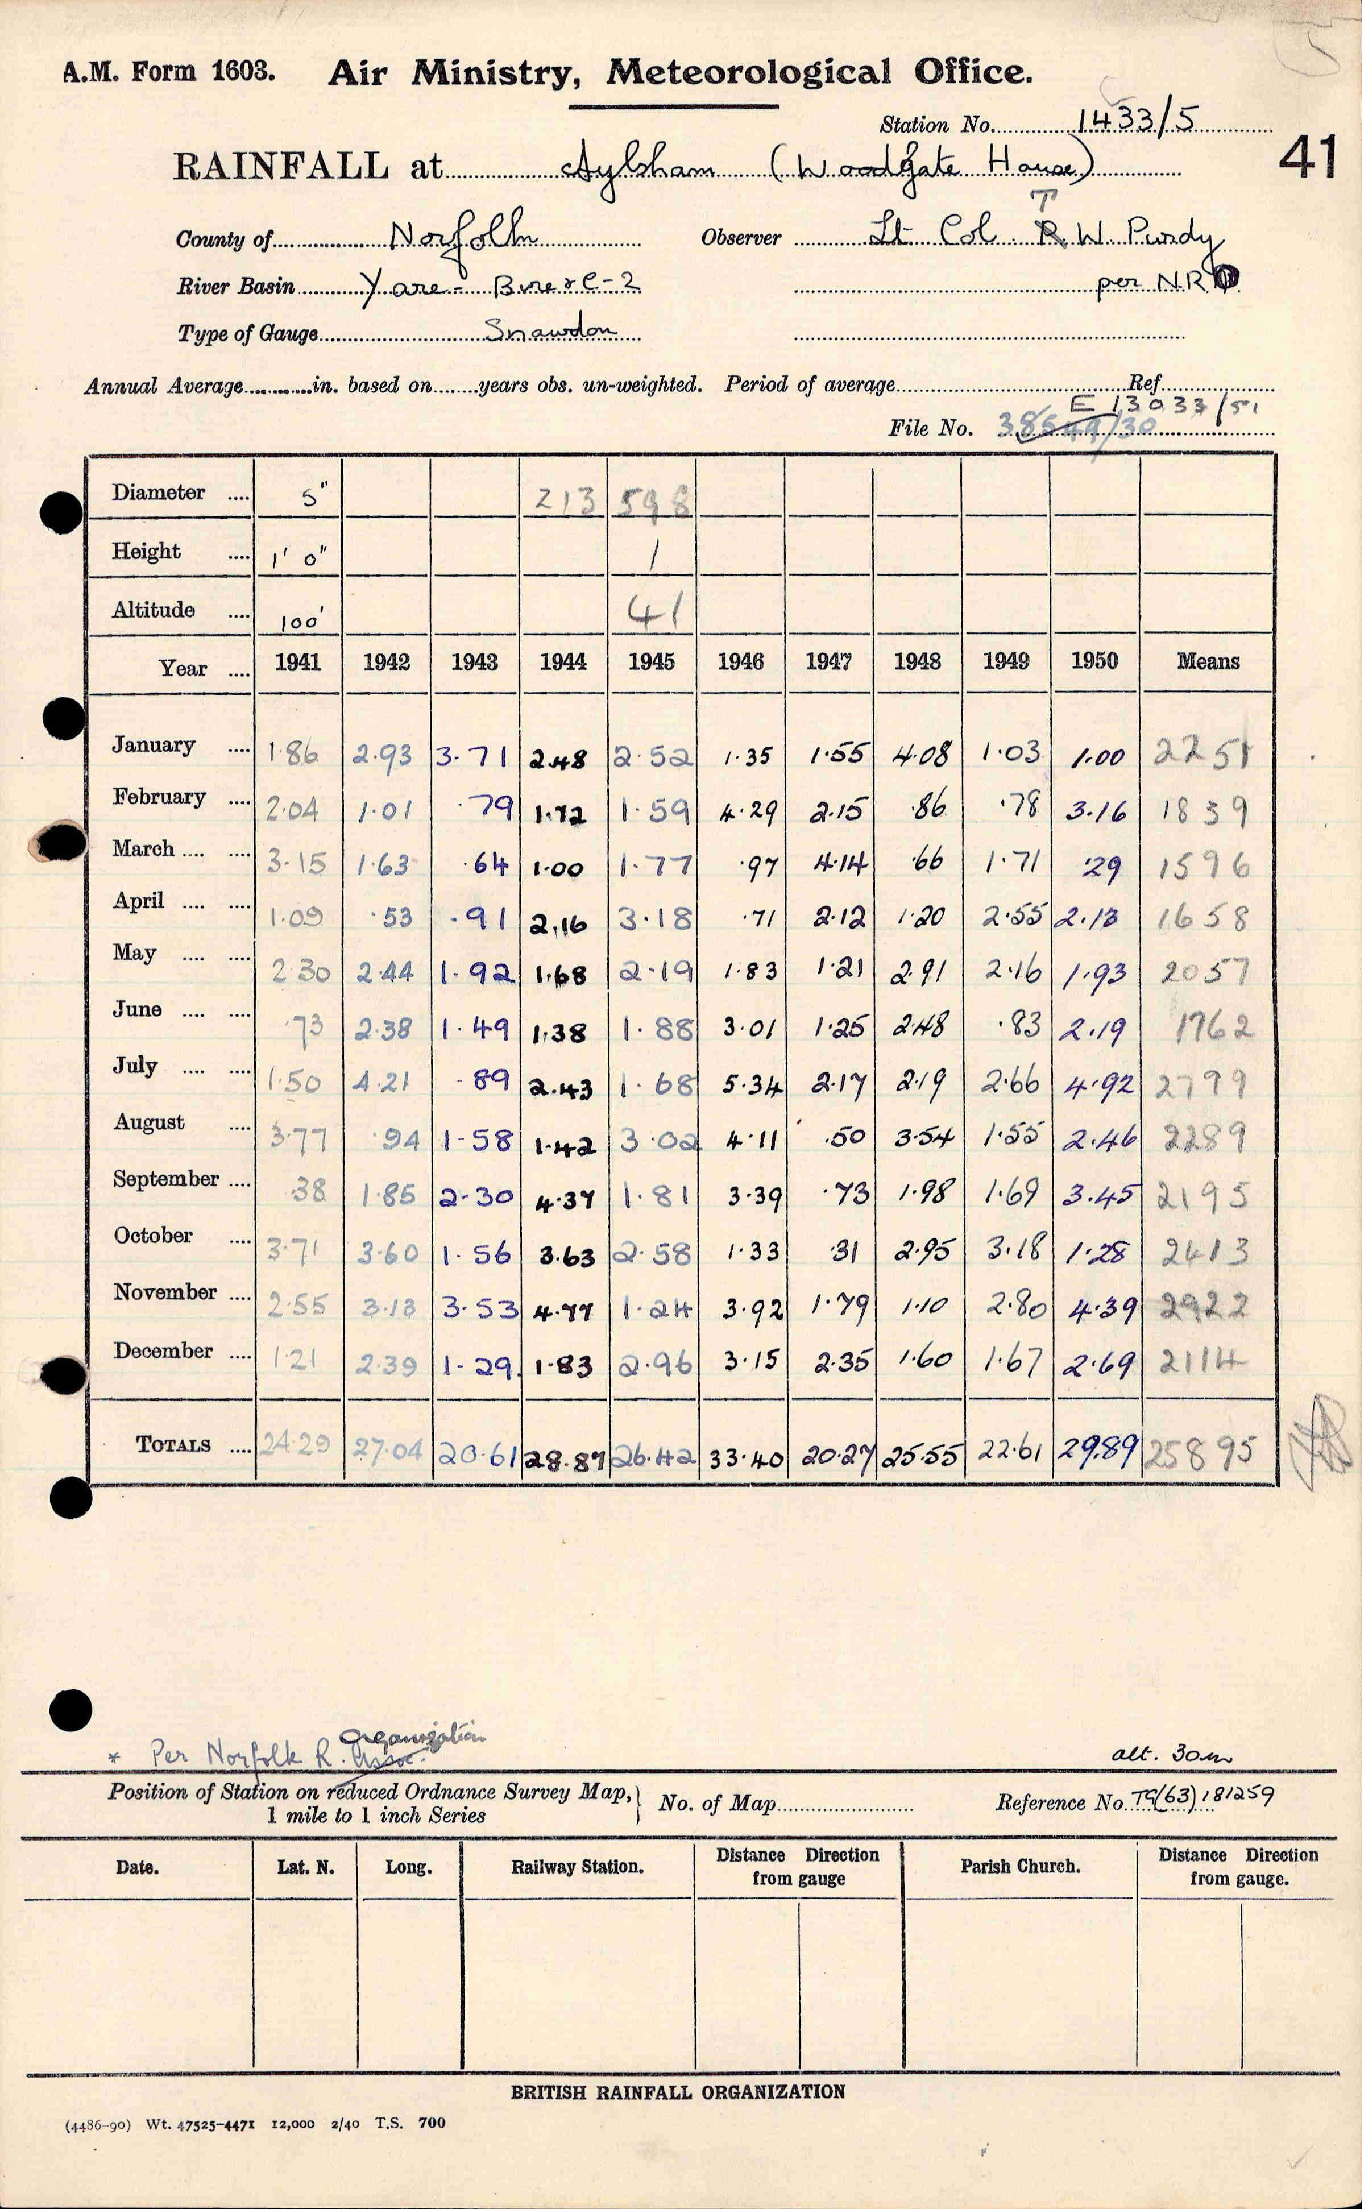 A.M. Form 1603. Air Ministry, Meteorological Office.
Station No. 1433/5
41
RAINFALL at Aylsham (Woodgate House)
County of Norfolk Observer Lt Col R T W. Purdy
River Basin Yare - Bure &c - 2 per NRO
Type of Gauge Snowdon
Annual Average in. based on years obs. un-weighted. Period of average Ref.
E 13033/51
File No. 38549/30
Diameter .... 5" 213 598
Height .... 1' 0" 1
Altitude .... 100' 41
Year .... 1941 1942 1943 1944 1945 1946 1947 1948 1949 1950 Means
January .... 1.86 2.93 3.71 2.48 2.52 1.35 1.55 4.08 1.03 1.00 2251
February .... 2.04 1.01 .79 1.72 1.59 4.29 2.15 .86 .78 3.16 1839
March .... .... 3.15 1.63 .64 1.00 1.77 .97 4.14 .66 1.71 .29 1596
April .... .... 1.09 .53 .91 2.16 3.18 .71 2.12 1.20 2.55 2.13 1658
May .... .... 2.30 2.44 1.92 1.68 2.19 1.83 1.21 2.91 2.16 1.93 2057
June .... .... .73 2.38 1.49 1.38 1.88 3.01 1.25 2.48 .83 2.19 1762
July .... .... 1.50 4.21 .89 2.43 1.68 5.34 2.17 2.19 2.66 4.92 2799
August .... 3.77 .94 1.58 1.42 3.02 4.11 .50 3.54 1.55 2.46 2289
September .... .38 1.85 2.30 4.37 1.81 3.39 .73 1.98 1.69 3.45 2195
October .... 3.71 3.60 1.56 3.63 2.58 1.33 .31 2.95 3.18 1.28 2413
November .... 2.55 3.13 3.53 4.77 1.24 3.92 1.79 1.10 2.80 4.39 2922
December .... 1.21 2.39 1.29 1.83 2.96 3.15 2.35 1.60 1.67 2.69 2114
TOTALS .... 24.29 27.04 20.61 28.87 26.42 33.40 20.27 25.55 22.61 29.89 25895
Organization
* Per Norfolk R. Assoc. alt. 30m
Position of Station on reduced Ordnance Survey Map, 1 mile to 1 inch Series No. of Map Reference No. TG(63)181259
Date. Lat. N. Long. Railway Station. Distance Direction from gauge Parish Church. Distance Direction from gauge.
BRITISH RAINFALL ORGANIZATION
(4486-90) Wt. 47525-4471 12,000 2/40 T.S. 700